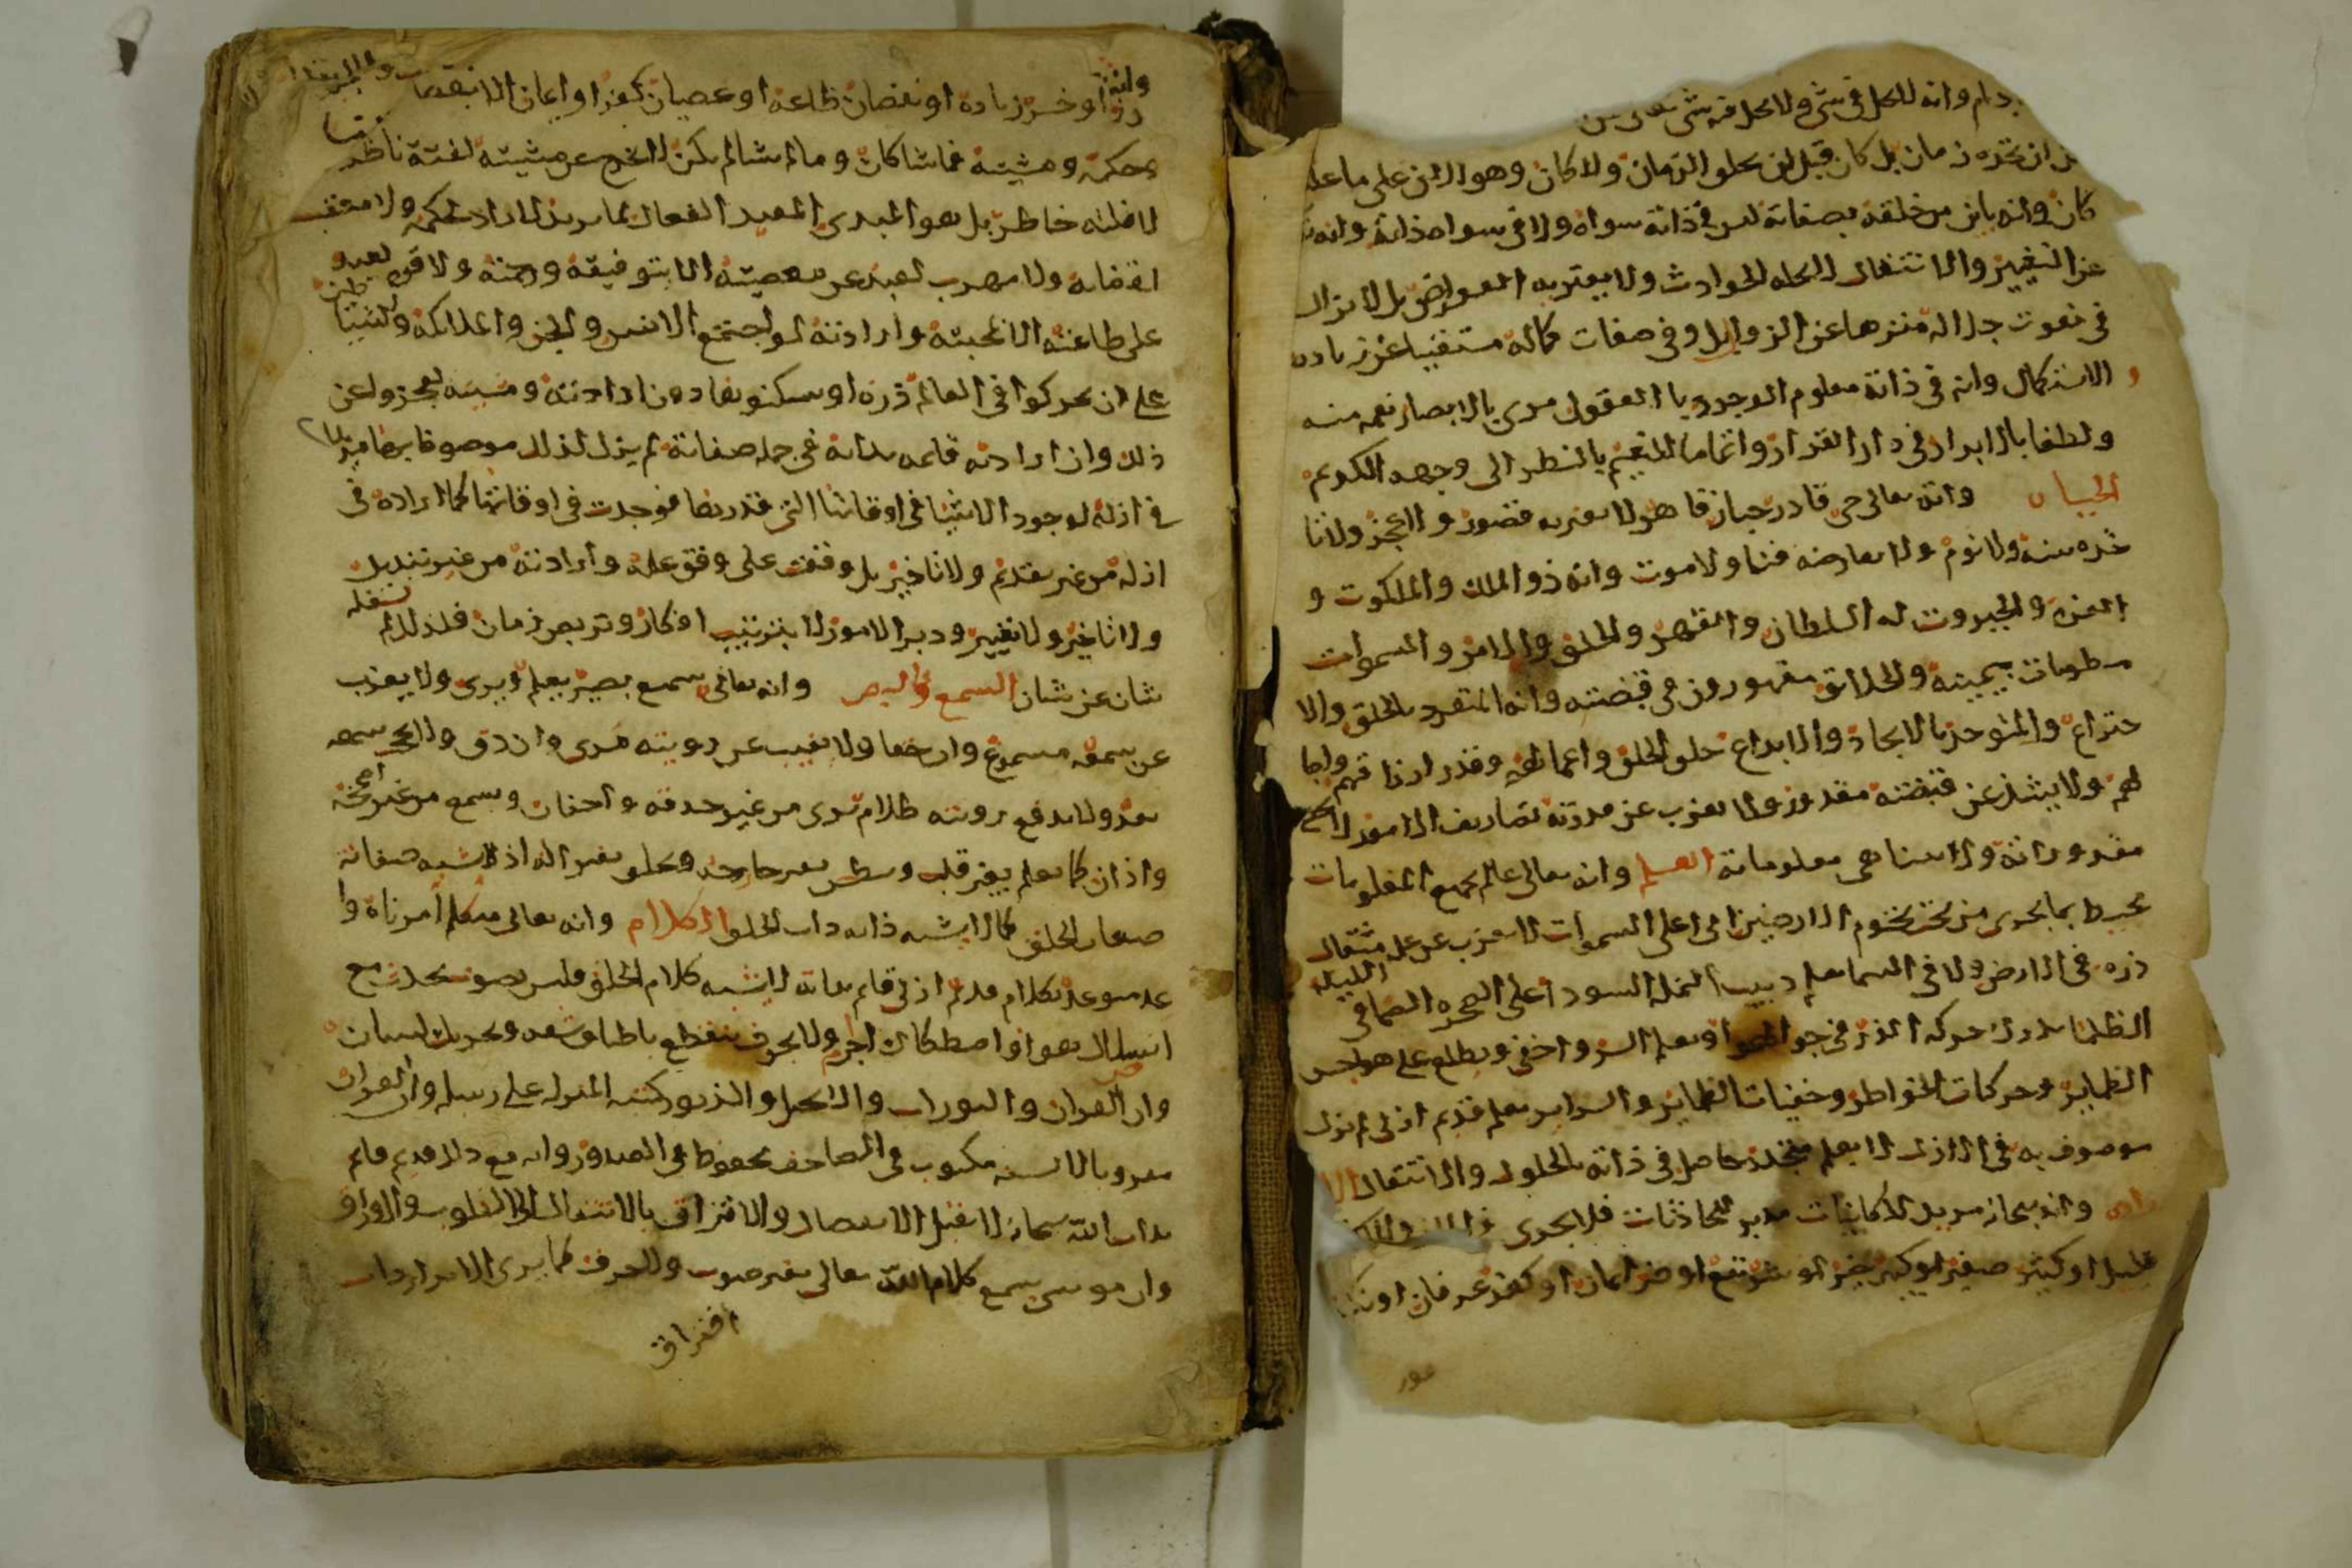 دام وانه لا يحل في شي ولا يحل فيه شي
ان يحده زمان بل كان قبل ان يخلق الزمان ولا كان وهو الان على ما عليه
كان وانه باين من خلقه بصفاته ليس في ذاته سواه ولا في سواه ذاته وانه
عن التغيير والانتقال لا تحله الحوادث ولا يعتريه العوارض بل لا يزال
في نعوت جلاله منزها عن الزوال وفي صفات كماله مستغنيا عن زياده
الاستكمال وانه في ذاته معلوم الوجود با العقول مرى بالابصار نعمه منه
ولطفا بالابرار في دار القرار واتماما للنعيم بالنظر الى وجهه الكريم
الحياه وانه تعالى حي قادر جبار قاهر لا يعتريه قصور ولا عجز ولا تا
خذه سنه ولا نوم ولا يعارضه فنا ولا موت وانه ذو الملك والملكوت و
العزه والجبروت له السلطان والقهر والخلق والامر والسموات
مطويات بيمينه والخلائق مقهورون في قبضته وانه المتفرد بالخلق والا
ختراع والمتوحد بالايجاد والابداع خلق الخلق واعمالهم وقدر ارزاقهم واجا
لهم ولا يشذ عن قبضته مقدور ولا يعزب عن قدرته تصاريف الامور لا تحصى
مقدوراته ولا يتناهى معلوماته العلم وانه تعالى عالم بجميع المعلومات
محيط بما يجرى من تحت تخوم الارضين الى اعلى السموات لا يعزب عن علمه مثقال
ذره في الارض ولا في السما يعلم دبيب النمله السودا على الصخره الصما في الليله
الظلما يدرك حركه الذر في جو الهوا ويعلم السر واخفى ويطلع على هواجس
الظماير وحركات الخواطر وخفيات الظماير والسراير بعلم قديم ازلي لم يزل
موصوف به في الازل لا بعلم متجدد حاصل في ذاته بالحلول والانتقال الا
راده وانه سبحانه مريد للكاينات مدبر للحادثات فلا يجرى في الملك والملكو
قليل او كثير صغير او كبير خير او شر نفع او ضر ايمان او كفر عرفان او نكر
فوز
فوز او خسر زياده او نقصان طاعه او عصيان كفر او ايمان الا بقضا
وحكمه ومشيته فما شا كان وما لم يشا لم يكن لا تخرج عن مشيته لفتة ناظر
لا فلته خاطر بل هو المبدى المعيد الفعال لما يريد لا راد لحكمه ولا معقب
لقضايه ولا مهرب لعبد عن معصيته الا بتوفيقه ورحمته ولا قوه لعبد
على طاعته الا بمحبته وارادته لو اجتمع الانس والجن والملائكه والشياطين
على ان يحركوا في العالم ذره او يسكنوها دون ارادته ومشيته لعجزوا عن
ذلك وان ارادته قايمه بذاته في جمله صفاته لم يزل كذلك موصوفا بها مريدا
في ازله لوجود الاشيا في اوقاتها التي قدرها فوجدت في اوقاتها كما اراده في
ازله من غير تقدم ولا تاخير بل وقعت على وفق علمه وارادته من غير تبديل
ولا تاخير ولا تغيير ودبر الامور لا بترتيب افكار وتربص زمان فلذلك لم يشغله
شان عن شان السمع والبصر وانه تعالى سميع بصير يعلم ويرى ولا يعزب
عن سمعه مسموع وان خفا ولا يغيب عن رويته مرى وان دق ولا يحجب سمعه
بعد ولا يدفع رويته ظلام يرى من غير حدقه واجفان ويسمع من غير اصمخه
واذان كما يعلم بغير قلب ويبطش بغير جارحه ويخلق بغير اله اذ لا تشبه صفاته
صفات الخلق كما لا يشبه ذاته ذات الخلق الكلام وانه تعالى متكلم امر ناه وا
عد متوعد بكلام قديم ازلي قايم بذاته لا يشبه كلام الخلق فليس بصوت يحدث مع
انسلال هوا او اصطكاك اجرم ولا بحرف ينقطع باطباق شفه وتحريك لسان
وان القران والتورات والانجيل والزبور كتبه المنزله على رسله وان القران
مقرو بالالسنه مكتوب في المصاحف محفوظ في الصدور وانه مع ذلك قديم قايم
بذات الله سبحانه لا يقبل الانفصال والافتراق بالانتقال الى القلوب والاوراق
وان موسى سمع كلام الله تعالى بغير صوت ولا حرف كما يرى الابرار ذات
افتراق